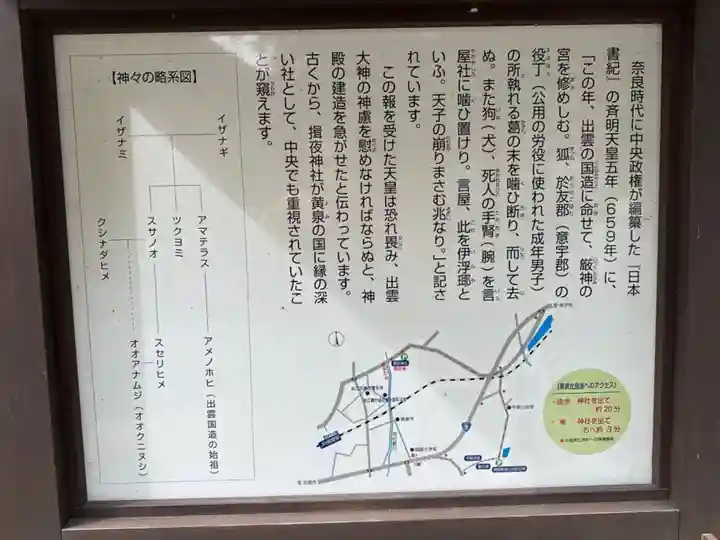 奈良時代に中央政権が編纂した『日本
書紀』の斉明天皇五年（659年）に、
「この年、出雲の国造に命せて、厳神の
宮を修めしむ。狐、於友郡（意宇郡）の
役丁（公用の労役に使われた成年男子）
の所執れる葛の末を噛ひ断り、而して去
ぬ。また狗（犬）、死人の手腎（腕）を言
屋社に噛ひ置けり。言屋、此を伊浮瑘と
いふ。天子の崩りまさむ兆なり。」と記さ
れています。
この報を受けた天皇は恐れ畏み、出雲
大神の神慮を慰めなければならぬと、神
殿の建造を急がせたと伝わっています。
古くから、揖夜神社が黄泉の国に縁の深
い社として、中央でも重視されていたこ
とが窺えます。
【神々の略系図】
イザナギ
イザナミ
アマテラス
ツクヨミ
スサノオ
クシナダヒメ
アメノホヒ（出雲国造の始祖）
スセリヒメ
オオアナムジ（オオクニヌシ）
《黄泉比良坂へのアクセス》
・徒歩 神社を出て
約20分
・車 神社を出て
右へ約3分
9